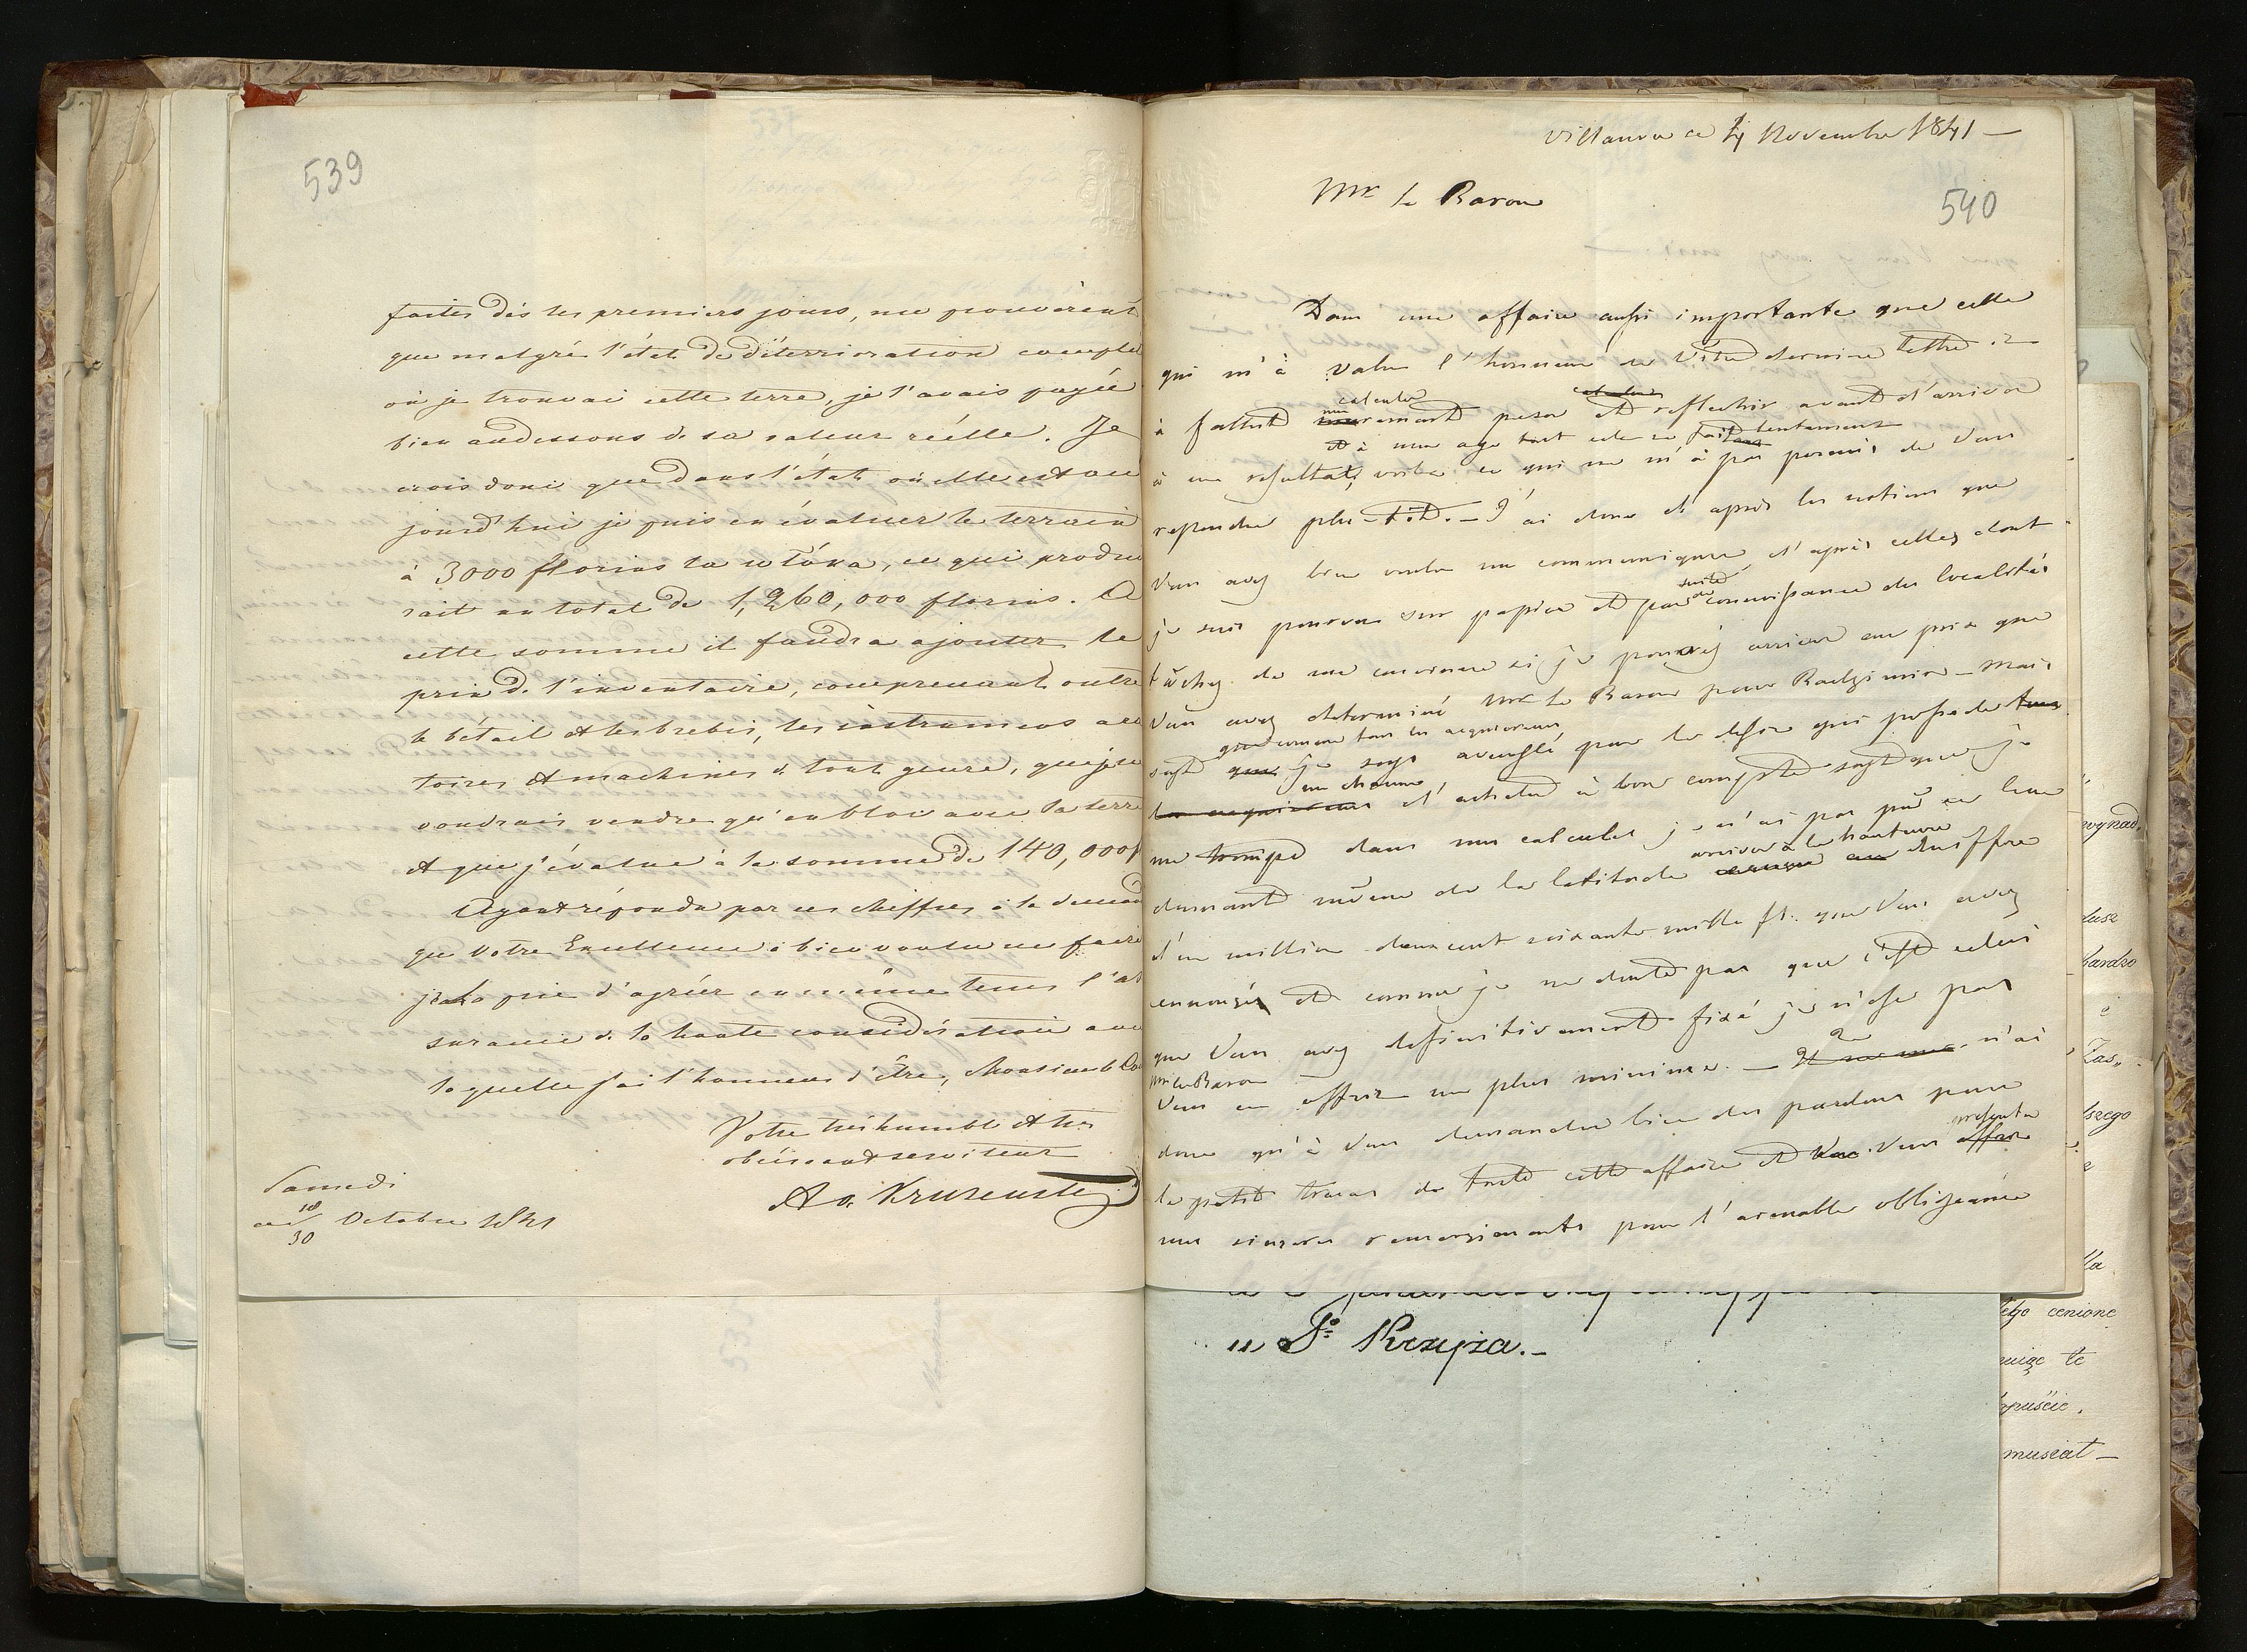 539
faites dès les premiers jours, me prouvèrent
que malgré l'état de déterrioration complet
où je trouvai cette terre, je l'avais payée
bien audessous de sa valeur réélle. Je
crois donc que dans l'état où elle est au
jourd'hui je puis en évaluer le terrain
à 3000 florins la włóka, ce qui produi
rait un total de 1,260,000 florins. A
cette somme il faudra ajouter le
prix de l'inventaire, comprenant outre
le bétail et les brebis, les instrumens ara
toires et machines de tout genre, que je ne
voudrais vendre qu'en bloc avec la terre
et que j'évalue à la somme de 140,000 f
Ayant répondu par ces chiffres à la deman
que Votre Excellence a bien voulu me faire
je la prie d'agréer en même tems l'as
surance de la haute considération avec
laquelle j'ai l'honneur d'être, Monsieur le Co
Votre très humble et très
obéissant serviteur
A v. Krusenstern
Samedi
ce 18/30 Octobre 1841
Villanow ce 4 Novembre 1841 —
540
Mr le Baron
Dans une affaire aussi importante que celle
qui m'à valu l'honneur de Vôtre derniere lettre il
calculer
à fallut murement peser et reflechir avant d'arriver
et à mon age tout cela se fait lentement
à un resultat, voila ce qui ne m'à pas permis de Vous
repondre plu-tôt. — J'ai donc d'après les notions que
Vous avez bien voulu me communiquer, et d'après celles dont
suite de
je suis pourvu sur papier et par connoissance des localités
tâchez de me convaincre si je pouvois arriver au prix que
Vous avez determiné Mr le Baron pour Radzimin — Mais
que comme tous les acquereurs
soit que je soye aveuglé par le desir qui possede tous
un chacun
les acquereurs d'acheter à bon compte soit que je
me trompe dans mes calculs je n'ai pas pû en leur
arriver à la hauteur
donnant même de la latitude du chiffre
d'un million deux cent soixante mille fl. que Vous avez
enoncés et comme je ne doute pas que c'est celui
que Vous avez definitivement fixé je n'ose pas
Mr le Baron
Vous en offrir un plus minime. — Je n'ai
donc qu'à Vous demander bien des pardons pour
presenter
le petit tracas de toute cette affaire et Vous offrir
mes sinceres remerciments pour l'aimable obligeance
„ Sº Krzyża.—
wygnad.
lusz
bardzo
Zas„
lszego
la
łego cenione
muię te
opuście.
musiał —